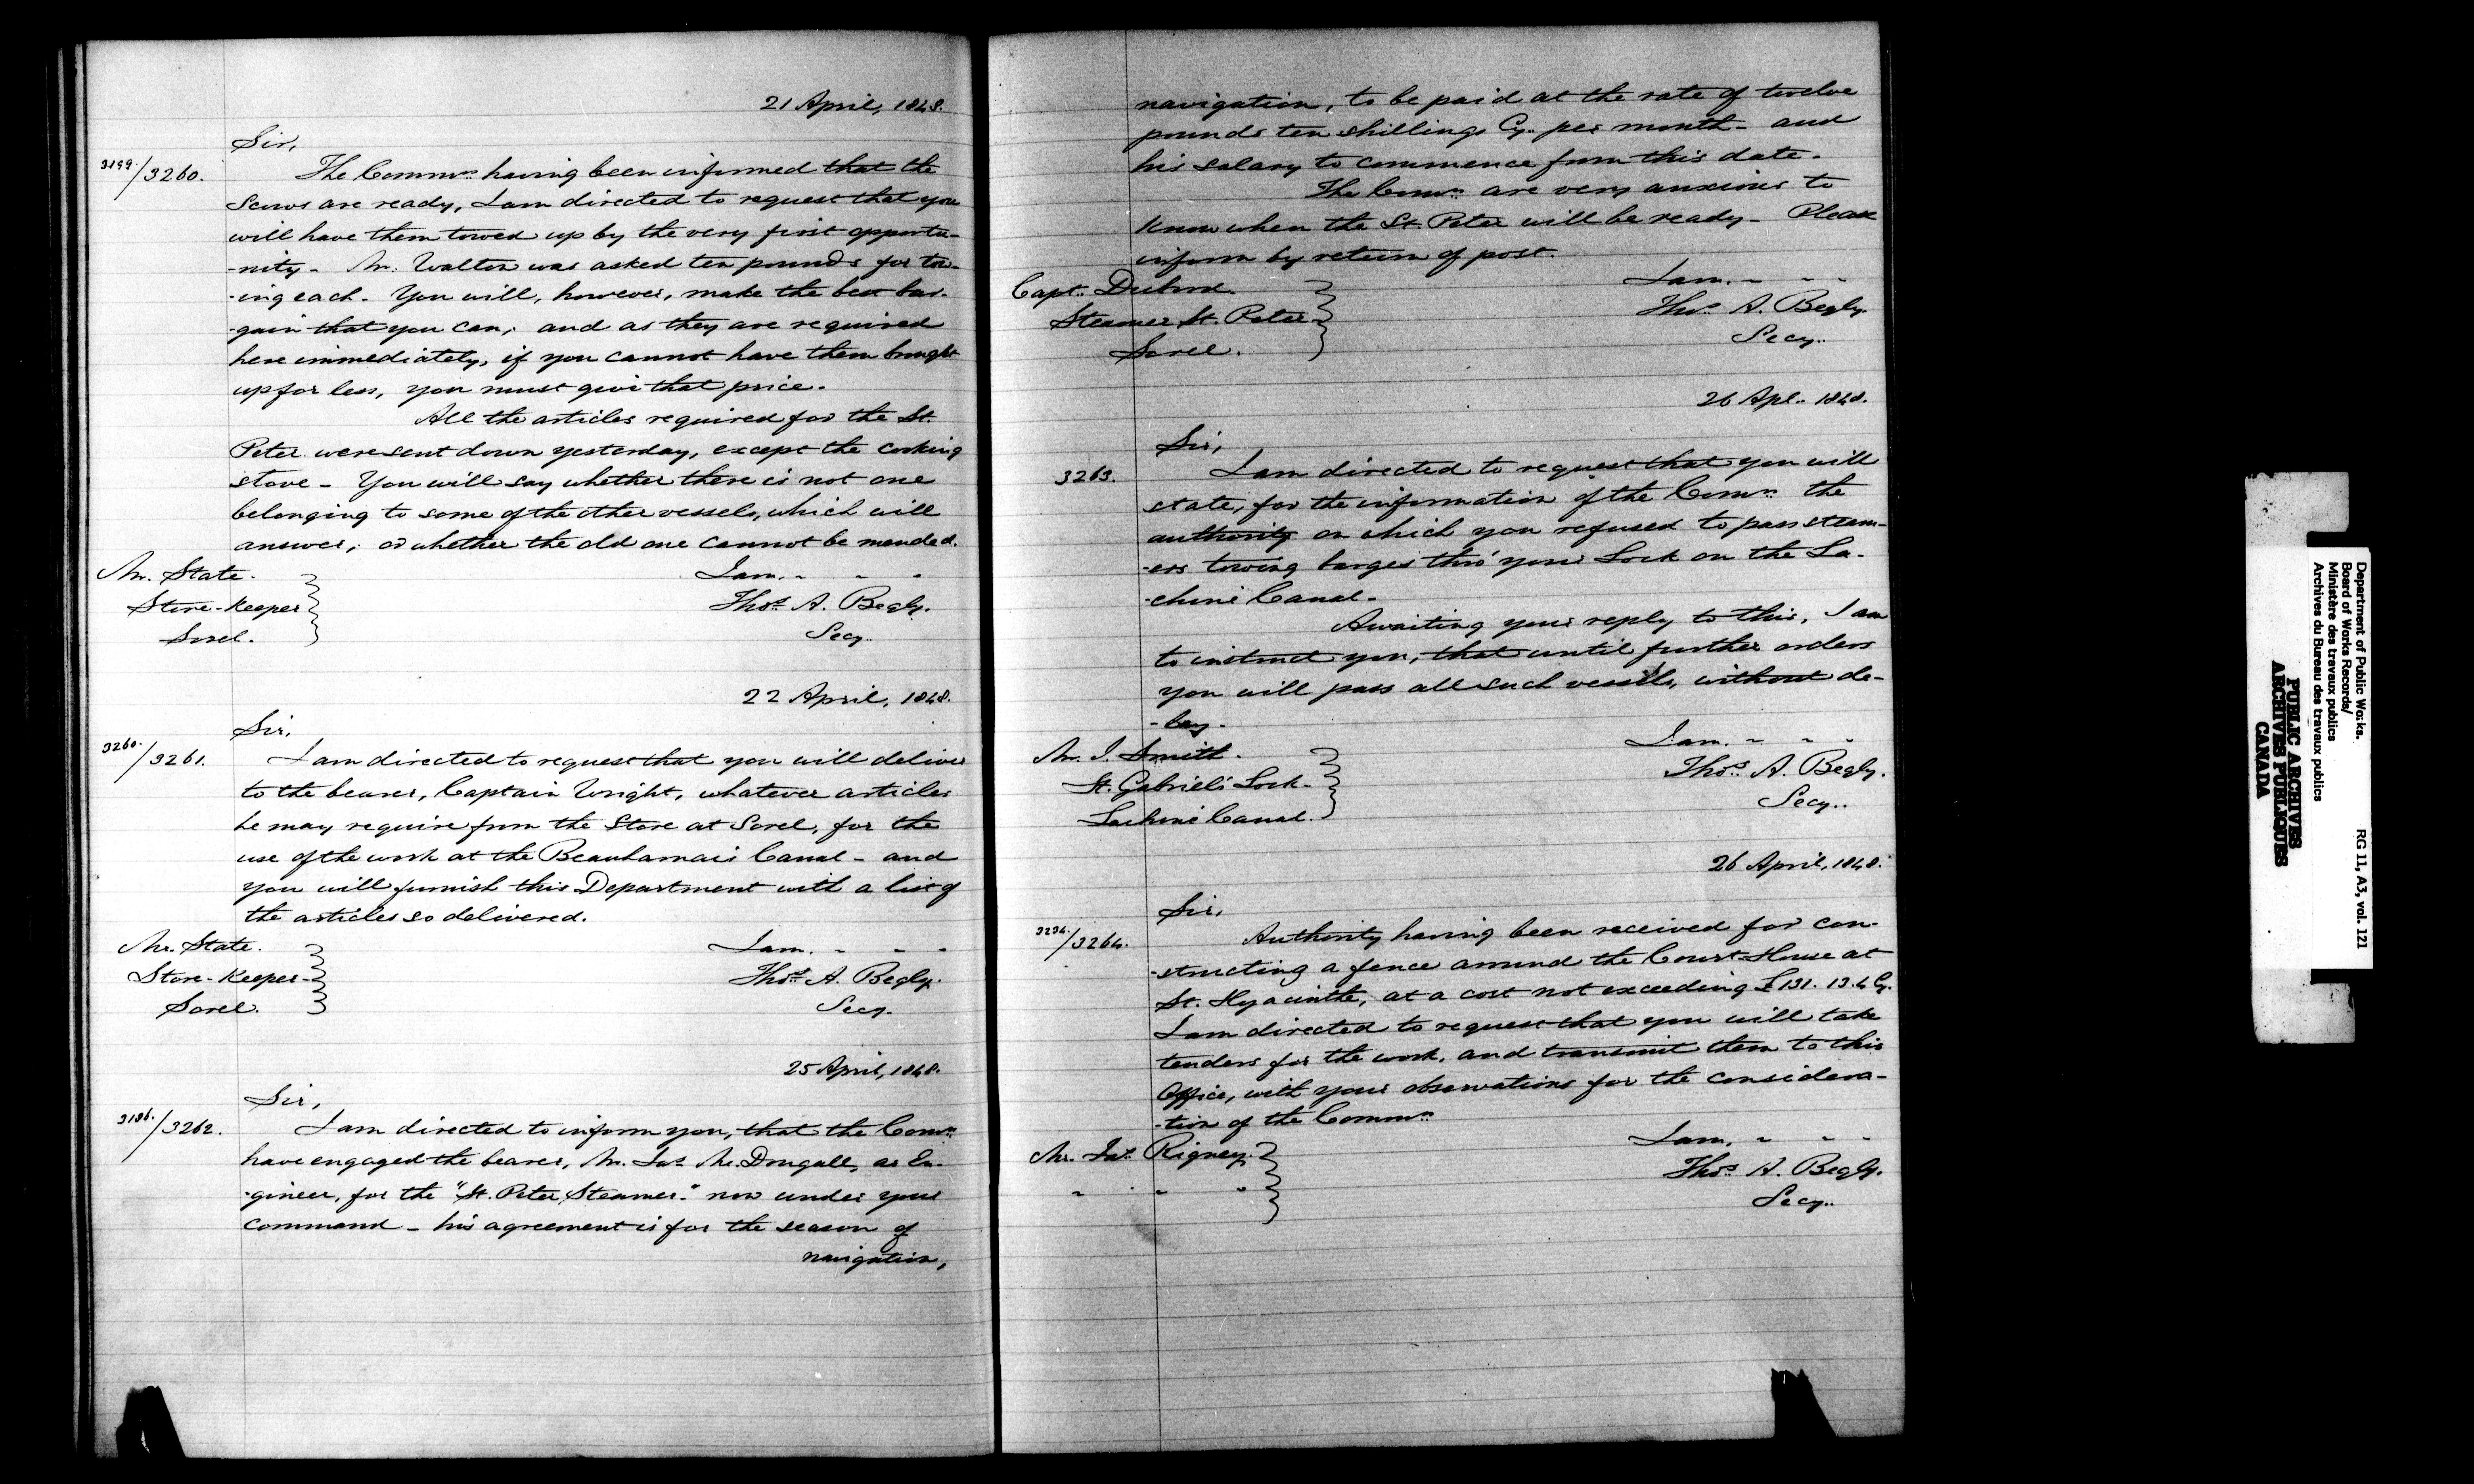 21 April, 1848.
Sir,
3199./3260. The Commrs. having been informed that the
Scows are ready, I am directed to request that you
will have them towed up by the very first opportu-
-nity - Mr. Walton was asked ten pounds for tow-
-ing each. You will, however, make the best bar-
-gain that you can; and as they are required
here immediately, if you cannot have them brought
up for less, you must give that price.
All the articles required for the St.
Peter were sent down yesterday, except the cooking
stove - You will say whether there is not one
belonging to some of the other vessels, which will
answer; or whether the old one cannot be mended.
Mr. State. I am. - - -
Store-Keeper Thos. A. Begly.
Sorel. Secy..
22 April, 1848.
Sir,
3260./3261. I am directed to request that you will deliver
to the bearer, Captain Wright, whatever articles
he may require from the Store at Sorel, for the
use of the work at the Beauharnais Canal - and
you will furnish this Department with a list of
the articles so delivered.
Mr. State. I am. - - -
Store-Keeper - Thos. A. Begly.
Sorel. Secy.
25 April, 1848.
Sir,
3136./3262. I am directed to inform you, that the Comrs.
have engaged the bearer, Mr. Jas. Mc.Dougall, as En-
-gineer, for the "St. Peter Steamer." now under your
command - his agreement is for the season of
navigation,
navigation, to be paid at the rate of twelve
pounds ten shillings Cy. per month - and
his salary to commence from this date.
The Comrs. are very anxious to
know when the St. Peter will be ready - Please
inform by return of post.
Capt. I am. - - -
Steamer St. Peter - Thos. A. Begly.
Sorel. Secy..
26 Apl.. 1848.
Sir,
3263. I am directed to request that you will
state, for the information of the Comrs. the
authority on which you refused to pass steam-
-ers towing barges thro' your Lock on the La-
-chine Canal.
Awaiting your reply to this, I am
to instruct you, that until further orders
you will pass all such vessels, without de-
-lay.
Mr. J. Smith. I am. - - -
St. Gabriel's Lock - Thos. A. Begly.
Lachine Canal. Secy..
26 April, 1848.
Sir,
3234./3264. Authority having been received for con-
-structing a fence around the Court-House at
St. Hyacinthe, at a cost not exceeding £131. 13. 4 Cy.
I am directed to request that you will take
tenders for the work, and transmit them to this
Office, with your observations for the considera-
-tion of the Commrs.
Mr. Jas. Rigney. I am. - - -
" " " Thos. A. Begly.
Secy..
Department of Public Works.
Board of Works Records/
Ministère des travaux publics
Archives du Bureau des travaux publics
RG 11, A3, vol. 121
PUBLIC ARCHIVES
ARCHIVES PUBLIQUES
CANADA